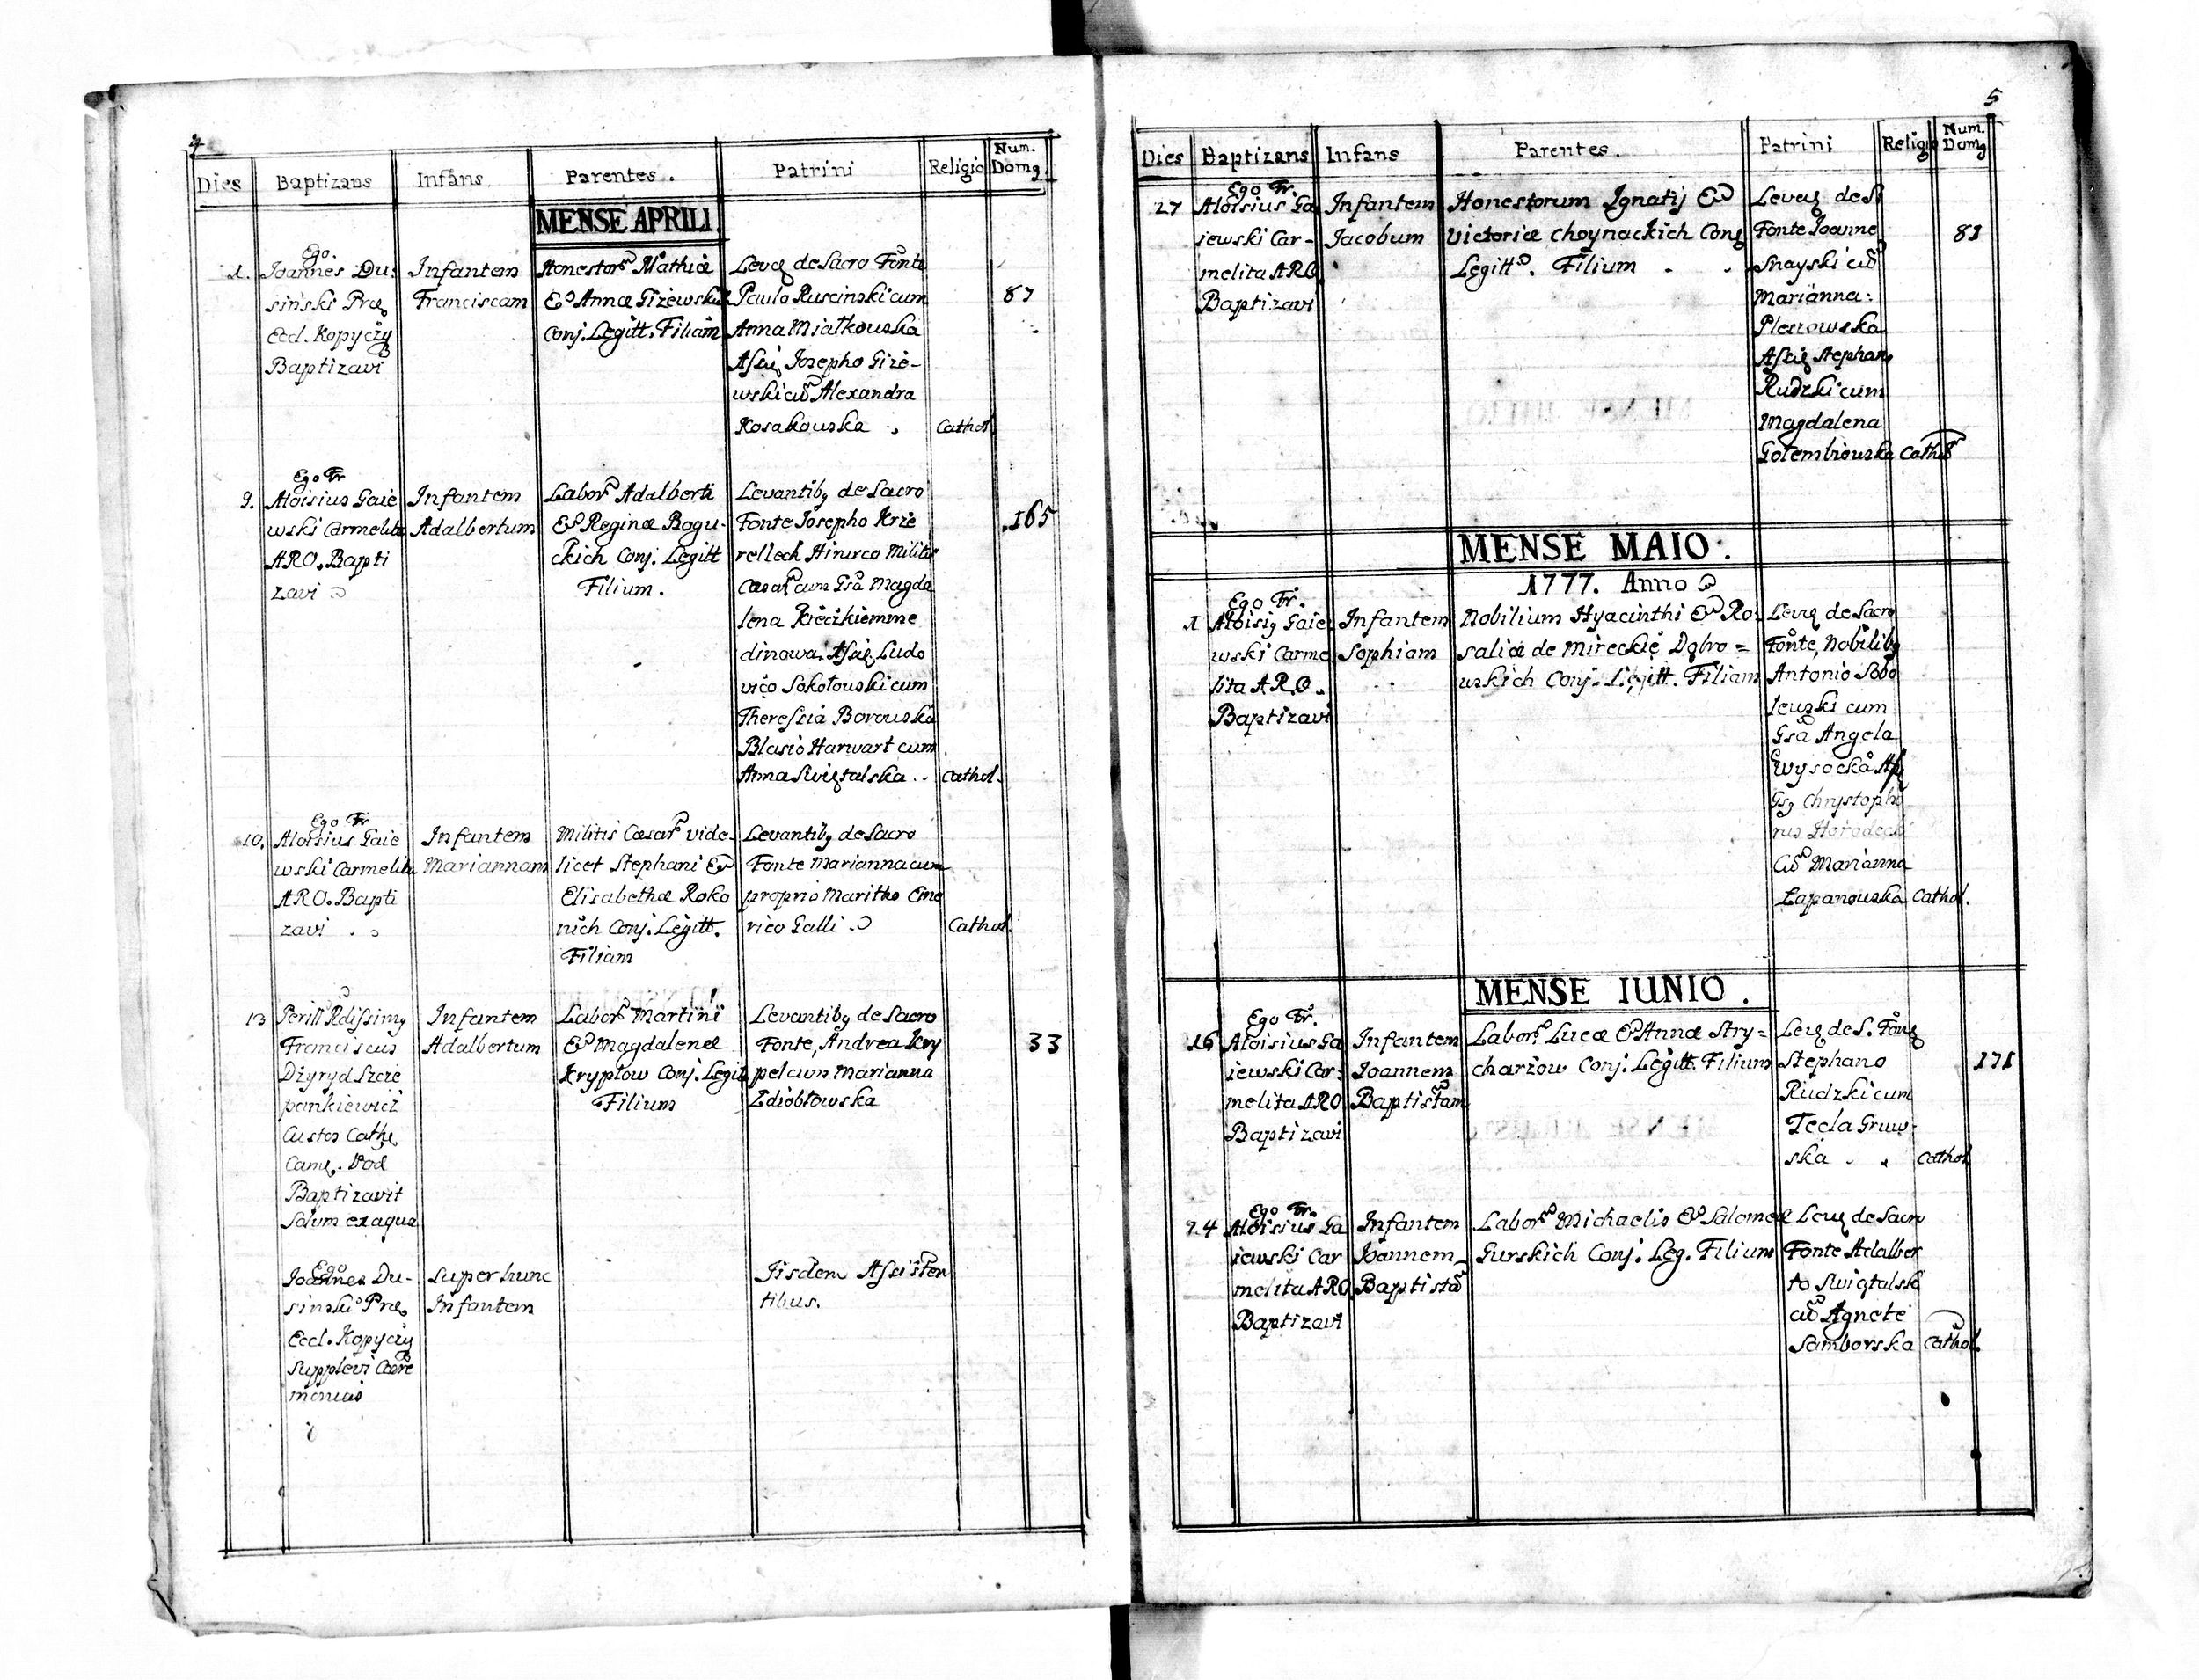 4
Dies Baptizans Infans Parentes. Patrini Religio Num. Domg.
MENSE APRILI
1.
Ego
Joannes Du:
sinski Præ
Eccl. Kopyczy
Baptizavi
Infantem
Franciscam
Honestor Mathiæ
Et Annæ Gizewski
Conj. Legitt. Filiam
Levg de Sacro Fonte
Paulo Ruscinski cum
Anna Miałkowska
Assis Josepho Gize-
wski cum Alexandra
Kosakowska
Cathol
87
9.
Ego Fr
Aloisius Gaie
wski Carmelita
ARO. Bapti
zavi
Infantem
Adalbertum
Labor Adalberti
Et Reginæ Bogu-
ckich Conj. Legitt
Filium.
Levantibg de Sacro
Fonte Josepho Krze
relleck Hinrco Militis
Cæsar cum Gsa Magda
lena
dinowa. Assis Ludo
vico Sokołowski cum
Theressia Borowska
Blasio Harwart cum
Anna Swigtalska
Cathol.
165
10.
Ego Fr
Aloisius Gaie
wski Carmelita
ARO. Bapti
zavi
Infantem
Mariannam
Militis Cæsar vide-
licet Stephani Et
Elisabethæ Roko
nich Conj. Legitt.
Filiam
Levantibg de Sacro
Fonte Marianna cum
proprio Maritho Eme
rico Galli
Cathol.
13
Perill Rdissimg
Franciscus
Dzyryd Szcze
pankiewicz
Custos Cathe
Came. Pod
Baptizavit
Solum ex aqua
Infantem
Adalbertum
Labor Martini
Et Magdalenæ
Kryplow Conj. Legit
Filium
Levantibg de Sacro
Fonte, Andrea Kry
pel cum Marianna
Zdiobłowska
33
Ego
Joannes Du-
sinski Præ
Eccl. Kopyczy
Supplevi Cære
monias
Super hunc
Infantem
Iisdem Assisten
tibus.
5
Dies Baptizans Infans Parentes. Patrini Religio Num. Domg
27
Ego Fr.
Aloisius Ga
iewski Car-
melita ARO
Baptizavi
Infantem
Jacobum
Honestorum Ignatij Et
Victoriæ Choynackich Cong
Legitt. Filium
Levag de S
Fonte Joanne
Snayski cum
Marianna:
Plerowska
Assig Stephano
Rudzki cum
Magdalena
Gołembiowska
Cathol
83
MENSE MAIO.
1777. Anno
1
Ego Fr.
Aloisig Gaie
wski Carme
lita ARO.
Baptizavi
Infantem
Sophiam
Nobilium Hyacinthi Et Ro:
saliæ de Mireckie Dąbro =
wskich Conj. Legitt. Filiam
Levg de Sacro
Fonte, Nobilibg
Antonio Sobo
lewski cum
Gsa Angela
Wysocka Ass
Gsg Chrystopho
rus Horodecki
Cum Marianna
Łapanowska
Cathol.
MENSE IUNIO.
16
Ego Fr.
Aloisius Ga
iewski Car:
melita ARO
Baptizavi
Infantem
Joannem
Baptistam
Labor. Lucæ Et Annæ Stry=
charzow Conj. Legitt. Filium
Levg de S. Fong
Stephano
Rudzki cum
Tecla Gruw-
ska
Cathol
171
24
Ego Fr.
Aloisius Ga
iewski Car
melita ARO
Baptizavi
Infantem
Joannem-
Baptista
Labor Michaelis Et Salomeæ
Gurskich Conj. Leg. Filium
Levg de Sacro
Fonte Adalber
to Swigtalski
cum Agnete
Samborska
Cathol.